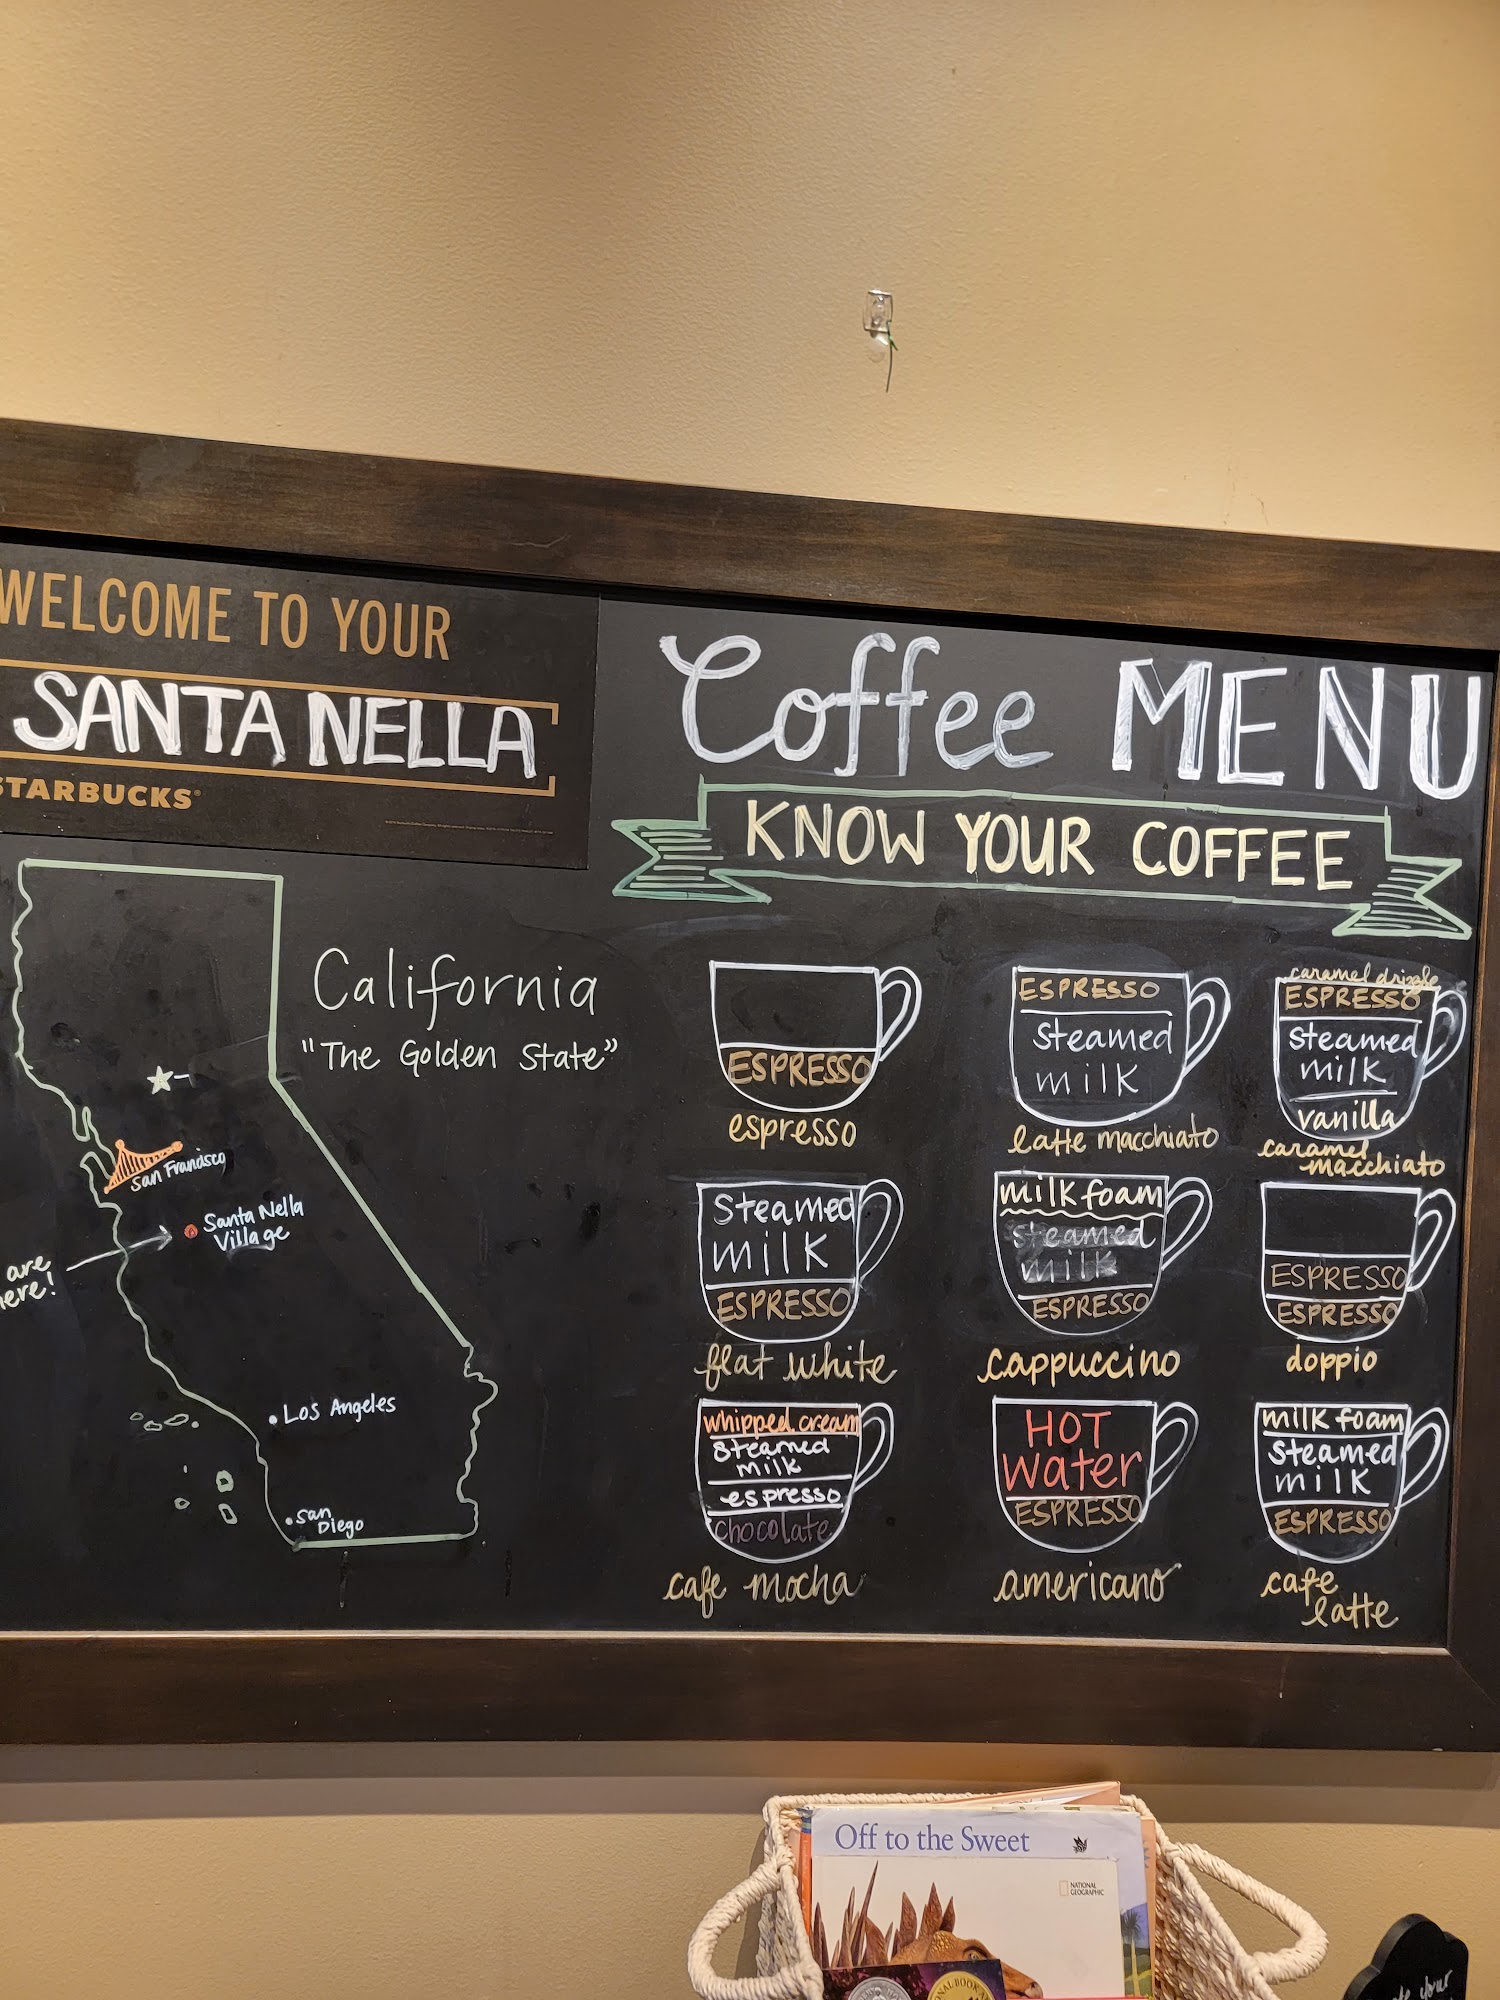 WELCOME TO YOUR
SANTA NELLA
STARBUCKS®
California
"The Golden State"
San Francisco
Santa Nella
Village
are
ere!
Los Angeles
San
Diego
Coffee MENU
KNOW YOUR COFFEE
ESPRESSO
espresso
ESPRESSO
steamed
milk
latte macchiato
caramel drizzle
ESPRESSO
steamed
milk
vanilla
caramel
macchiato
steamed
milk
ESPRESSO
flat white
milk foam
steamed
milk
ESPRESSO
cappuccino
ESPRESSO
ESPRESSO
doppio
whipped cream
steamed
milk
espresso
chocolate
cafe mocha
HOT
water
ESPRESSO
americano
milk foam
steamed
milk
ESPRESSO
cafe
latte
Off to the Sweet
NATIONAL
GEOGRAPHIC
your